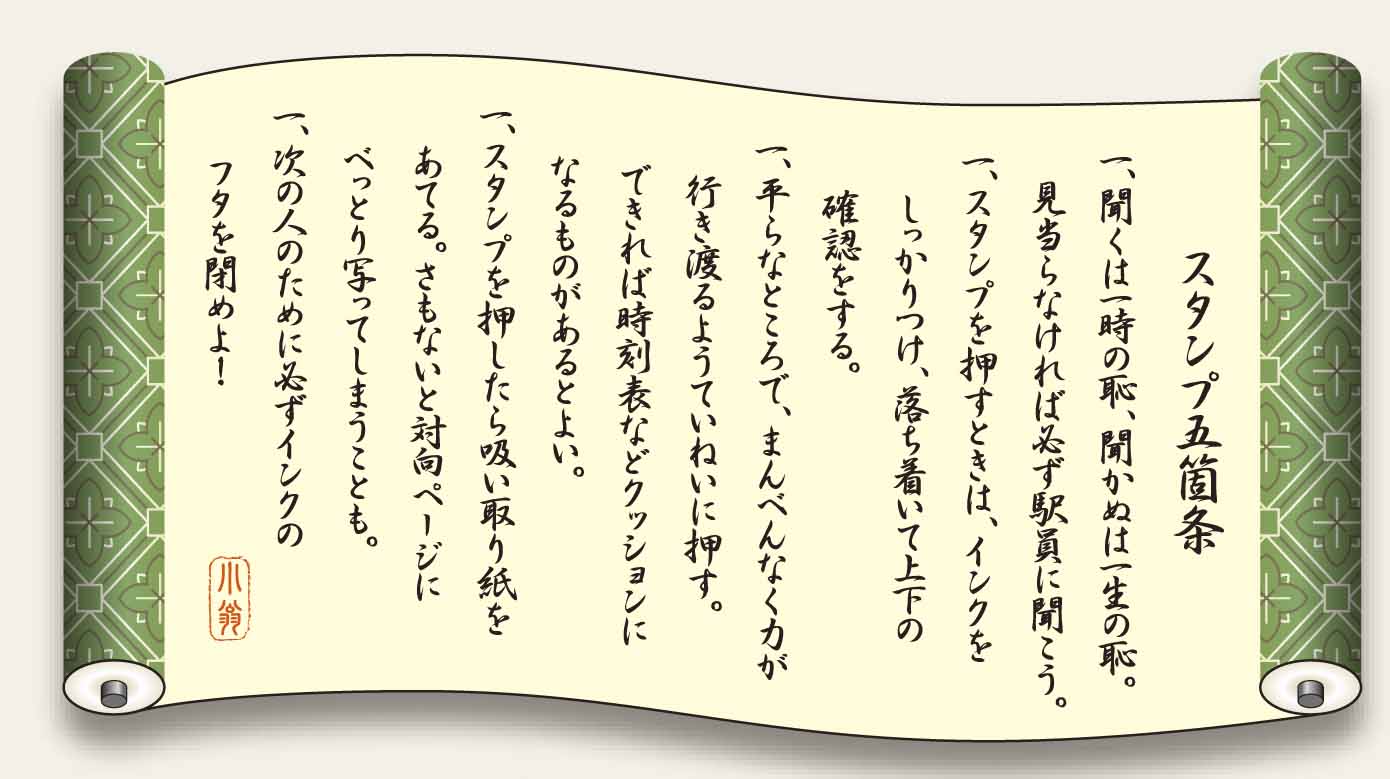 スタンプ五箇条
一、聞くは一時の恥、聞かぬは一生の恥。
見当らなければ必ず駅員に聞こう。
一、スタンプを押すときは、インクを
しっかりつけ、落ち着いて上下の
確認をする。
一、平らなところで、まんべんなく力が
行き渡るようていねいに押す。
できれば時刻表などクッションに
なるものがあるとよい。
一、スタンプを押したら吸い取り紙を
あてる。さもないと対向ページに
べっとり写ってしまうことも。
一、次の人のために必ずインクの
フタを閉めよ！
小翁